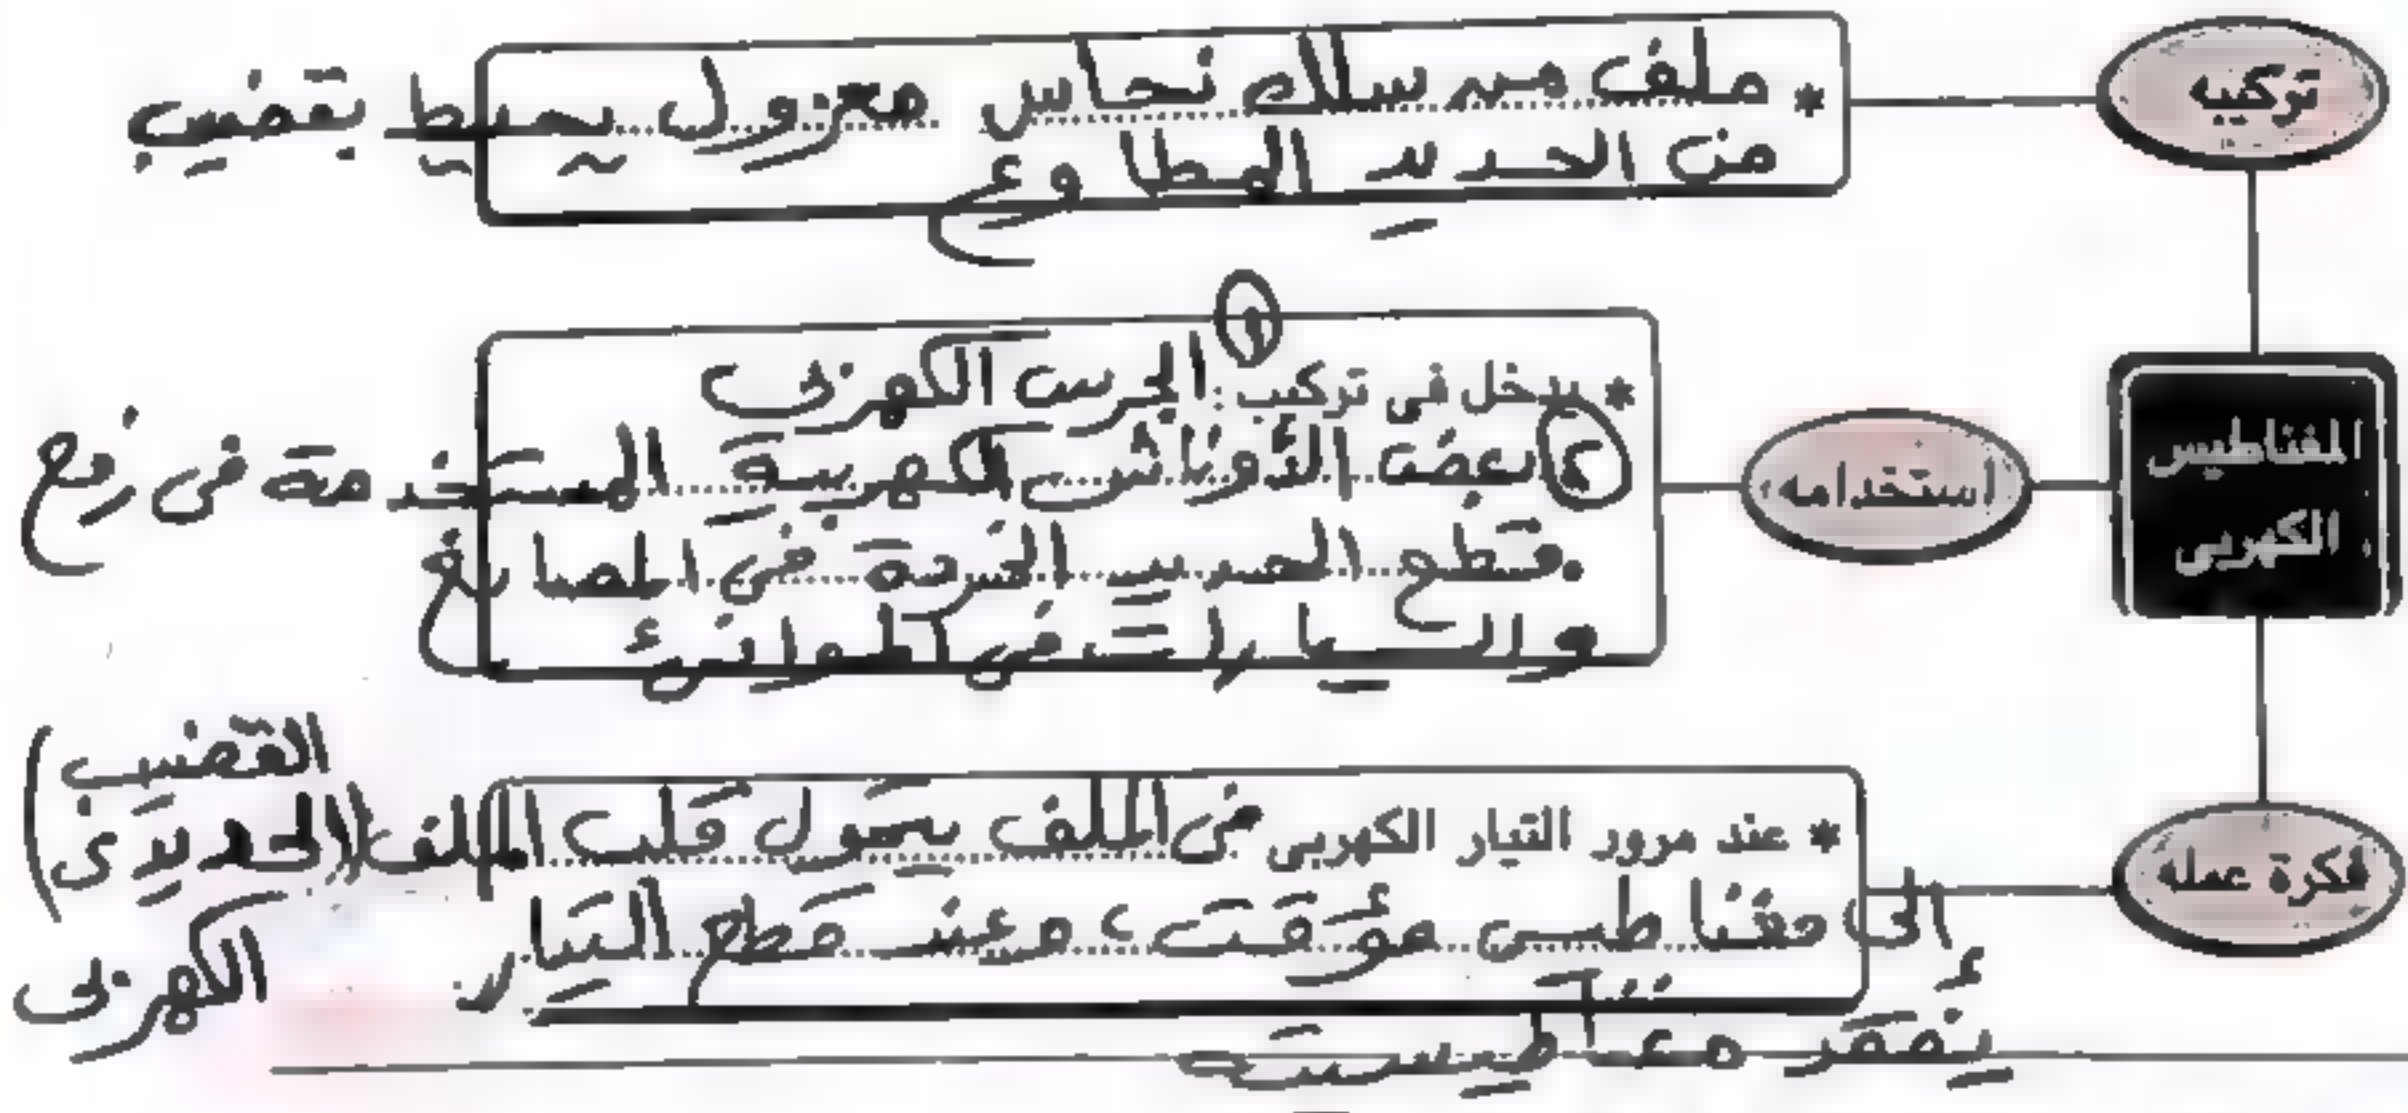 تركيبه
* ملف من سلك نحاس معزول يحيط بقضيب
من الحديد المطاوع
المغناطيس
الكهربى
استخدامه
* يدخل فى تركيب: ① الجرس الكهربى
② بعض الأوناش الكهربية المستخدمة فى رفع
قطع الحديد الخردة فى المصانع
والسيارات فى الموانئ
فكرة عمله
* عند مرور التيار الكهربى فى الملف يتحول قلب الملف (القضيب الحديدى)
إلى مغناطيس مؤقت، وعند قطع التيار الكهربى
يفقد مغناطيسيته